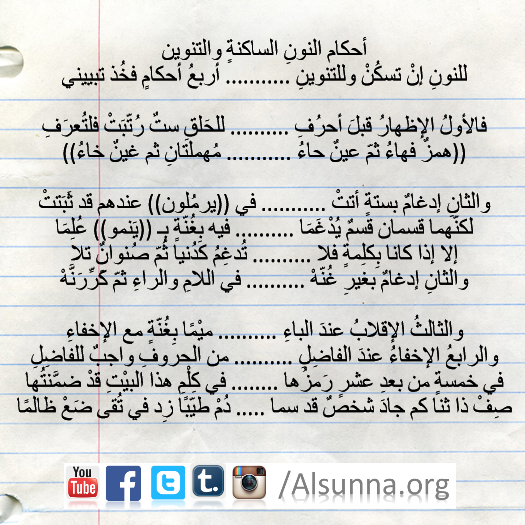 أحكام النونِ الساكنةِ والتنوين
للنونِ إنْ تسكُنْ وللتنوينِ ........... أربعُ أحكامٍ فخُذ تبييني
فالأولُ الإظهارُ قبلَ أحرُفِ .......... للحَلقِ ستٌ رُتِّبَتْ فلتُعرَفِ
((همزٌ فهاءُ ثمّ عينٌ حاءُ ........... مُهملتَانِ ثم غينٌ خاءُ))
والثانِ إدغامٌ بستةٍ أتتْ ........... في ((يرمُلون)) عندهم قد ثَبَتتْ
لكنّهما قسمان قسمٌ يُدْغَمَا .......... فيه بِغُنّةٍ بـِ ((يَنمو)) عُلِمَا
إلا إذا كانا بِكِلمةٍ فلا .......... تُدغِمُ كدُنيا ثُمّ صُنوانٌ تلا
والثانِ إدغامٌ بغيرِ غُنّهْ .......... في اللامِ والراءِ ثمّ كرِّرَنَّهْ
والثالثُ الإقلابُ عندَ الباءِ .......... ميْمًا بِغُنّةٍ مع الإخفاءِ
والرابعُ الإخفاءُ عندَ الفاضِلِ .......... من الحروفِ واجبٌ للفاضِلِ
في خمسةٍ من بعدِ عشرٍ رَمزُها ........ في كِلْمِ هذا البيْتِ قدْ ضمَّنتُها
صِفْ ذا ثنا كم جادَ شخصٌ قد سما ..... دُمْ طيّبًا زِد في تُقى ضَعْ ظالمًا
You Tube f t. /Alsunna.org